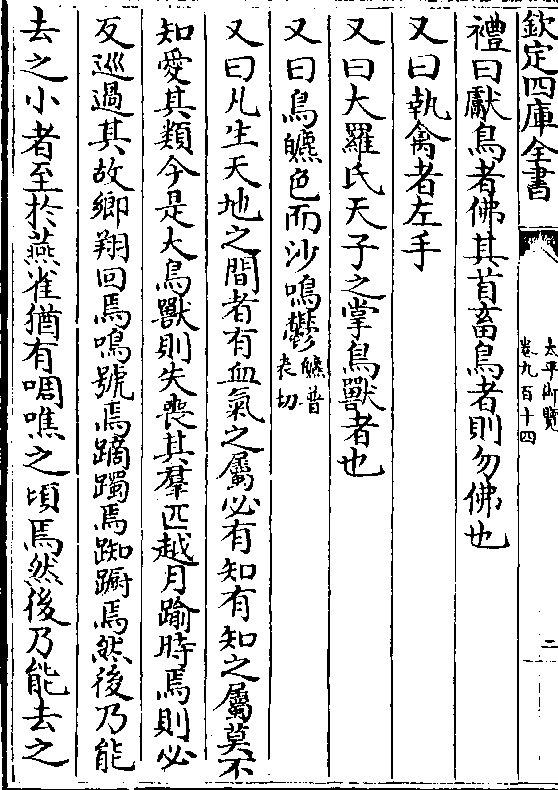 欽定四庫全書
太平御覽
卷九百十四
二
禮曰獻鳥者佛其首畜鳥者則勿佛也
又曰執禽者左手
又曰大羅氏天子之掌鳥獸者也
又曰鳥皫色而沙鳴鬱皫普表切
又曰凡生天地之間者有血氣之屬必有知有知之屬莫不
知愛其類今是大鳥獸則失喪其羣匹越月踰時焉則必
反巡過其故鄉翔回焉鳴號焉蹢躅焉踟蹰焉然後乃能
去之小者至於燕雀猶有啁噍之頃焉然後乃能去之